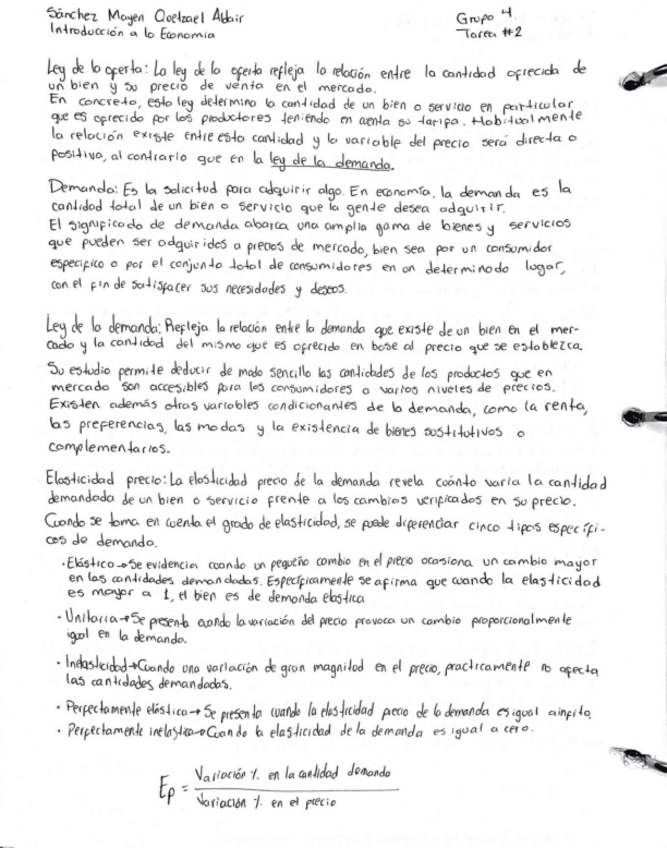 Sánchez Mayen Quetzael Aldair
Grupo 4
Introducción a la Economia
Tarea #2
Ley de la oferta: La ley de la oferta refleja la relación entre la cantidad ofrecida de
un bien y su precio de venta en el mercado.
En concreto, esta ley determina la cantidad de un bien o servicio en particular
que es ofrecido por los productores teniendo en cuenta su tarifa. Habitualmente
la relación existe entre esta cantidad y la variable del precio será directa o
positiva, al contrario que en la ley de la demanda.
Demanda: Es la solicitud para adquirir algo. En economía, la demanda es la
cantidad total de un bien o servicio que la gente desea adquirir.
El significado de demanda abarca una amplia gama de bienes y servicios
que pueden ser adquiridos a precios de mercado, bien sea por un consumidor
especifico o por el conjunto total de consumidores en un determinado lugar,
con el fin de satisfacer sus necesidades y deseos.
Ley de la demanda: Refleja la relación entre la demanda que existe de un bien en el mer-
cado y la cantidad del mismo que es ofrecido en base al precio que se establezca.
Su estudio permite deducir de modo sencillo las cantidades de los productos que en
mercado son accesibles para los consumidores a varios niveles de precios.
Existen además otras variables condicionantes de la demanda, como la renta,
las preferencias, las modas y la existencia de bienes sustitutivos o
complementarios.
Elasticidad precio: La elasticidad precio de la demanda revela cuánto varía la cantidad
demandada de un bien o servicio frente a los cambios verificados en su precio.
Cuando se toma en cuenta el grado de elasticidad, se puede diferenciar cinco tipos específi-
cos de demanda.
· Elástico → Se evidencia cuando un pequeño cambio en el precio ocasiona un cambio mayor
en las cantidades demandadas. Específicamente se afirma que cuando la elasticidad
es mayor a 1, el bien es de demanda elastica
· Unitaria → Se presenta cuando la variación del precio provoca un cambio proporcionalmente
igual en la demanda.
· Inelasticidad → Cuando una variación de gran magnitud en el precio, practicamente no afecta
las cantidades demandadas.
· Perfectamente elástica → Se presenta cuando la elasticidad precio de la demanda es igual a infito.
· Perfectamente inelastica → Cuando la elasticidad de la demanda es igual a cero.
Ep = Variación % en la cantidad demanda
Variación % en el precio